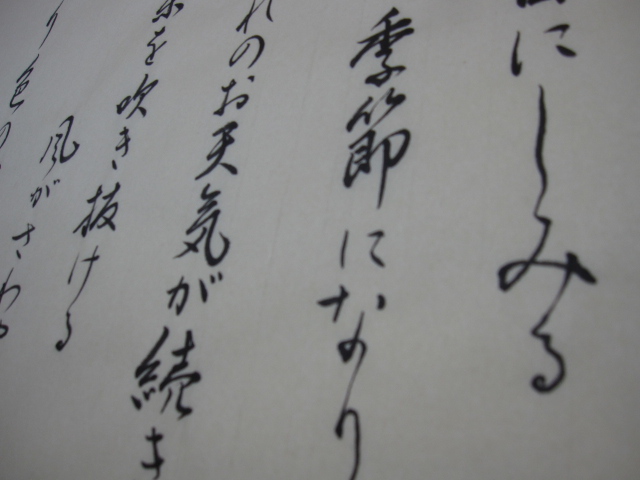 にしみる
季節になり
れのお天気が続き
を吹き抜ける
風がさわ
り色の